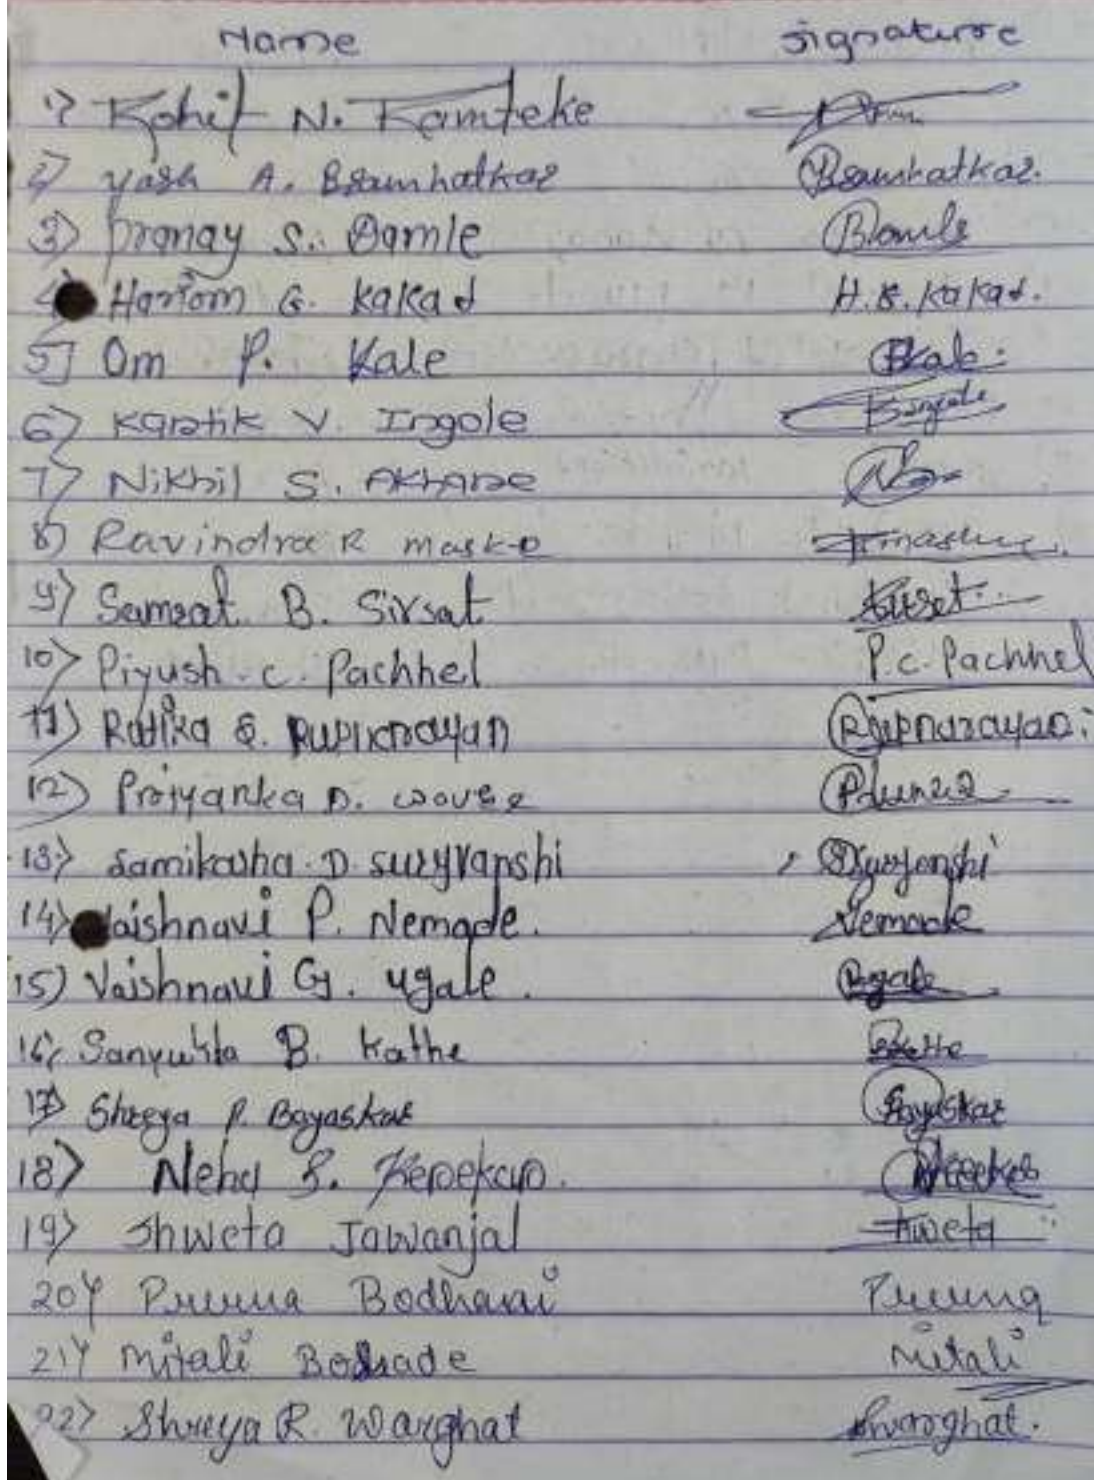 Name Signature
1) Rohit N. Kamteke
2) Yash A. Bramhatkar Bramhatkar.
3) Pranay S. Damle Damle
4) Hariom G. Kakad H.G. Kakad.
5] Om P. Kale Pkale.
6) Kartik V. Ingole
7) Nikhil S. Akhare
8) Ravindra R maske
9) Samrat B. Sirsat
10) Piyush . C. Pachhel P.C. Pachhel
11) Radika G. Rupnarayan Rupnarayan.
12) Priyanka D.
13) Samiksha . D. suryvanshi
14) Vaishnavi P. Nemade. Nemade
15) Vaishnavi G. Ugale. Ugale
16) Sanyukta B. Kathe Kathe
17) Shreya P. Bayaskar Bayaskar
18) Neha S.
19) Shweta Jawanjal Shweta
20) Purva Purva
21) Mitali Mitali
22) Shreya R. Warghat Swarghat.